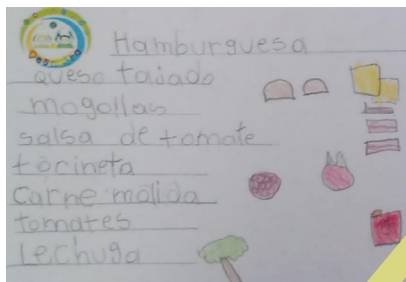 Hamburguesa
queso tajado
mogollas
salsa de tomate
tocineta
carne molida
tomates
Lechuga